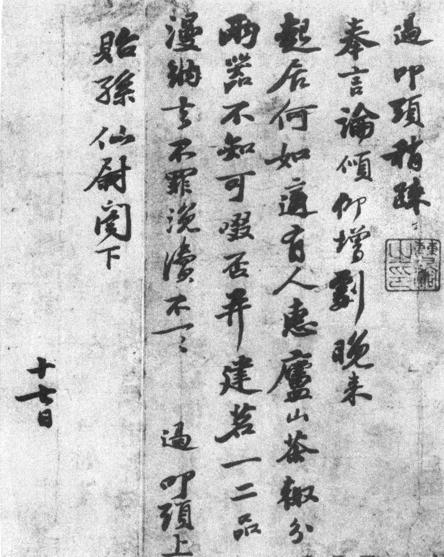 過叩頭稍疎
奉言論傾仰增劇晚来
起居何如適有人惠廬山茶輙分
兩器不知可啜否并建茗一二品
漫納去不罪浼瀆不一一 過叩頭上
貽孫仙尉閣下
十七日